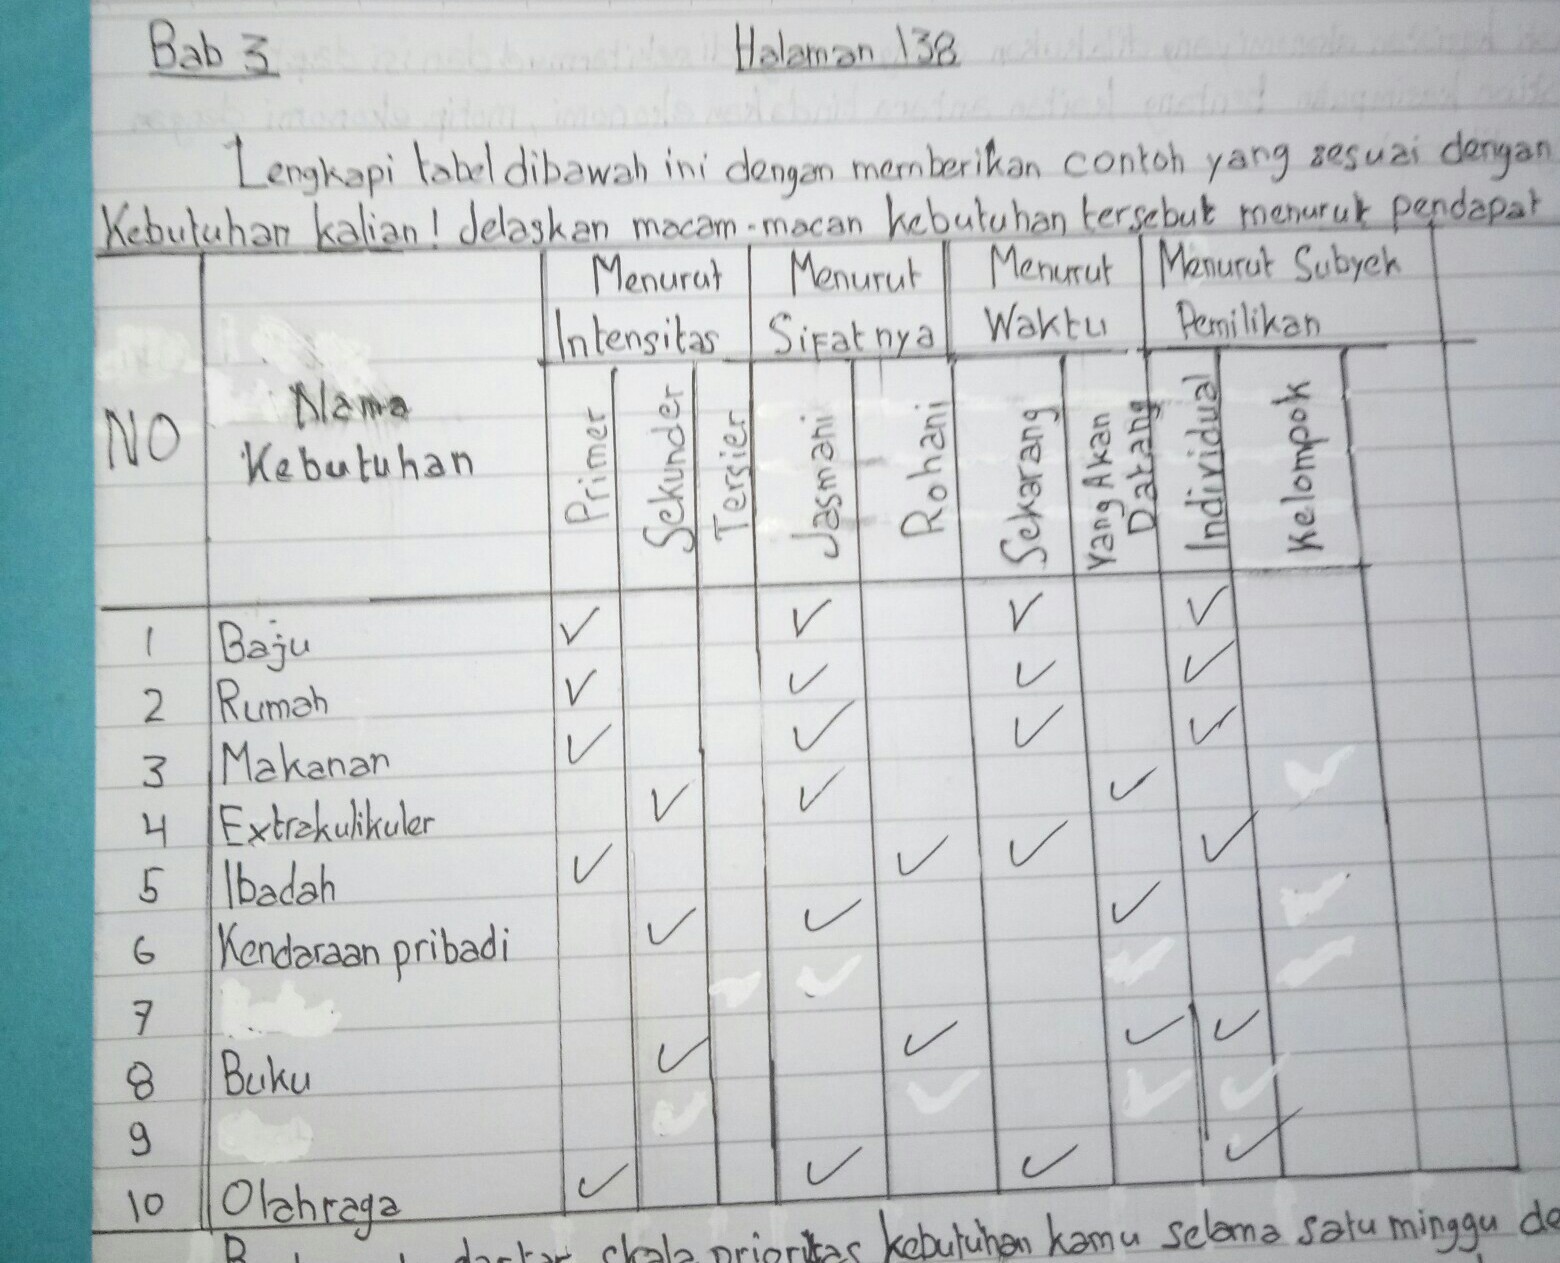 Bab 3 Halaman 138
Lengkapi tabel dibawah ini dengan memberikan contoh yang sesuai dengan
Kebutuhan kalian! Jelaskan macam-macan kebutuhan tersebut menurut pendapat
NO Nama Kebutuhan Menurut Intensitas Menurut Sifatnya Menurut Waktu Menurut Subyek Pemilikan
Primer Sekunder Tersier Jasmani Rohani Sekarang Yang Akan Datang Individual Kelompok
1 Baju ✓ ✓ ✓ ✓
2 Rumah ✓ ✓ ✓ ✓
3 Makanan ✓ ✓ ✓ ✓
4 Extrakulikuler ✓ ✓ ✓
5 Ibadah ✓ ✓ ✓ ✓
6 Kendaraan pribadi ✓ ✓ ✓
7
8 Buku ✓ ✓ ✓ ✓
9
10 Olahraga ✓ ✓ ✓ ✓
skala prioritas kebutuhan kamu selama satu minggu